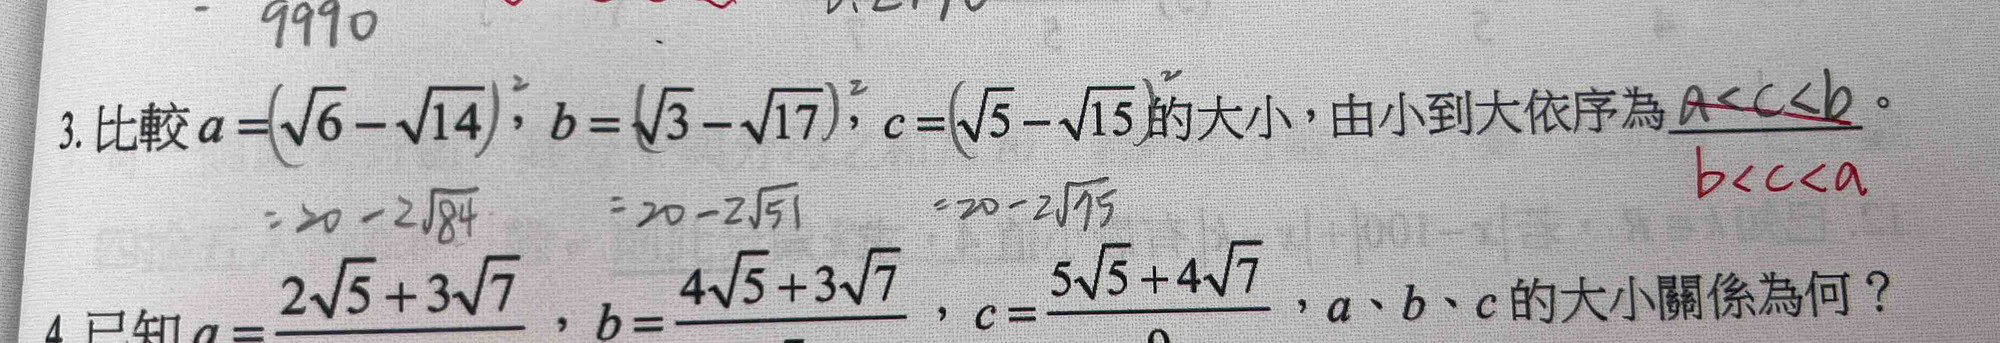 9990
3. 比較 a = (√6 − √14)²，b = (√3 − √17)²，c = (√5 − √15)² 的大小，由小到大依序為 a<c<b。
b<c<a
= 20 − 2√84 = 20 − 2√51 = 20 − 2√75
4. 已知 a = 2√5 + 3√7 ，b = 4√5 + 3√7 ，c = 5√5 + 4√7 ，a、b、c 的大小關係為何？